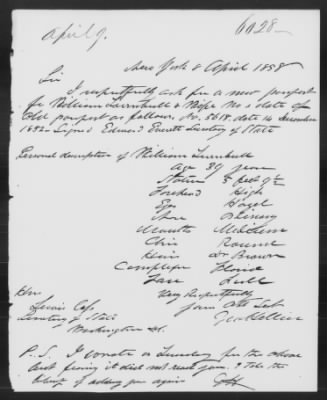 April 9.
6028-
New York 8 April 1858
Sir
I respectfully ask for a new passport
for William Turnbull & Wife No & date of
Old passport as follows. No. 5618. date 14 December
1852 - Signed Edward Everett Secretary of State
Personal description of William Turnbull
age 39 years
Stature 5 feet 9½
Forehead High
Eyes Hazel
Nose Ordinary
Mouth Medium
Chin Round
Hair Dk Brown
Complexion Florid
Face Full
Very Respectfully
Your Obt Svt
Geo
Hon
Lewis Cass
Secretary of State
Washington DC.
P.S. I wrote on Tuesday for the above
but fearing it did not reach you. I take the
liberty of addressing you again GH